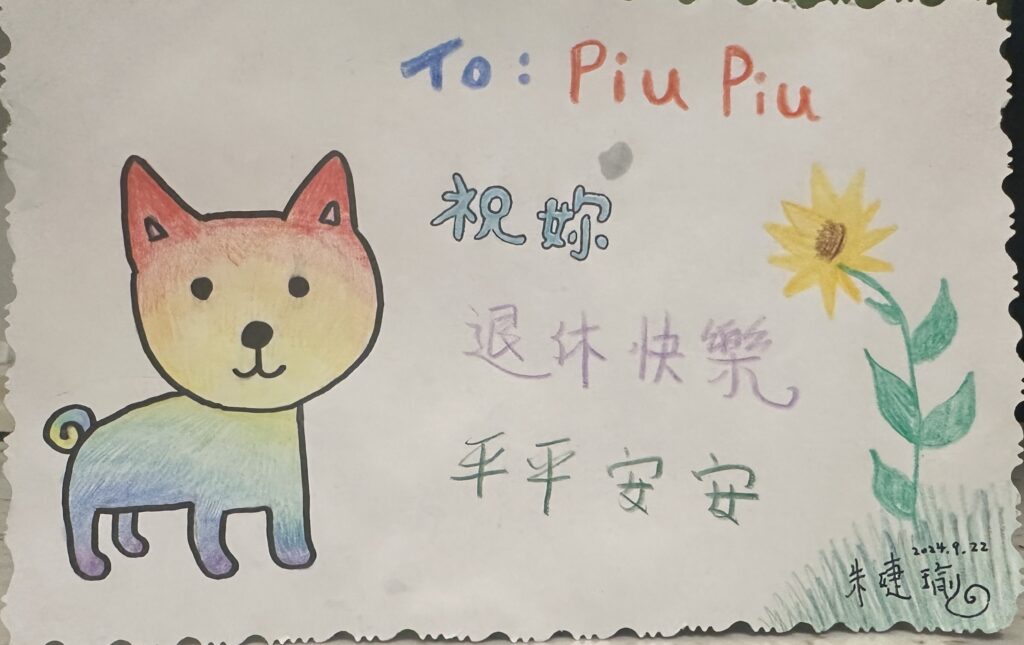 To: Piu Piu
祝妳
退休快樂
平平安安
2024.9.22
朱婕瑜